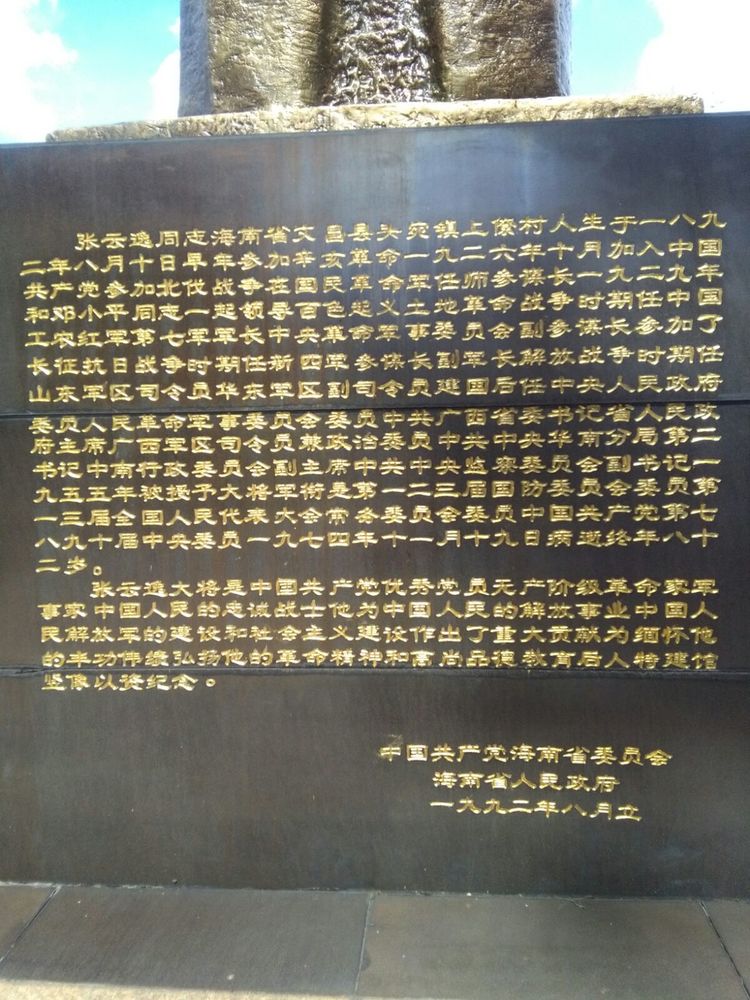 张云逸同志海南省文昌县头宛镇上僚村人生于一八九
二年八月十日早年参加辛亥革命一九二六年十月加入中国
共产党参加北伐战争在国民革命军任师参谋长一九二九年
和邓小平同志一起领导百色起义土地革命战争时期任中国
工农红军第七军军长中央革命军事委员会副参谋长参加了
长征抗日战争时期任新四军参谋长副军长解放战争时期任
山东军区司令员华东军区副司令员建国后任中央人民政府
委员人民革命军事委员会委员中共广西省委书记省人民政
府主席广西军区司令员兼政治委员中共中央华南分局第二
书记中南行政委员会副主席中共中央监察委员会副书记一
九五五年被授予大将军衔是第一二三届国防委员会委员第
一三届全国人民代表大会常务委员会委员中国共产党第七
八九十届中央委员一九七四年十一月十九日病逝终年八十
二岁。
张云逸大将是中国共产党优秀党员无产阶级革命家军
事家中国人民的忠诚战士他为中国人民的解放事业中国人
民解放军的建设和社会主义建设作出了重大贡献为缅怀他
的丰功伟绩弘扬他的革命精神和高尚品德教育后人特建馆
竖像以资纪念。
中国共产党海南省委员会
海南省人民政府
一九九二年八月立